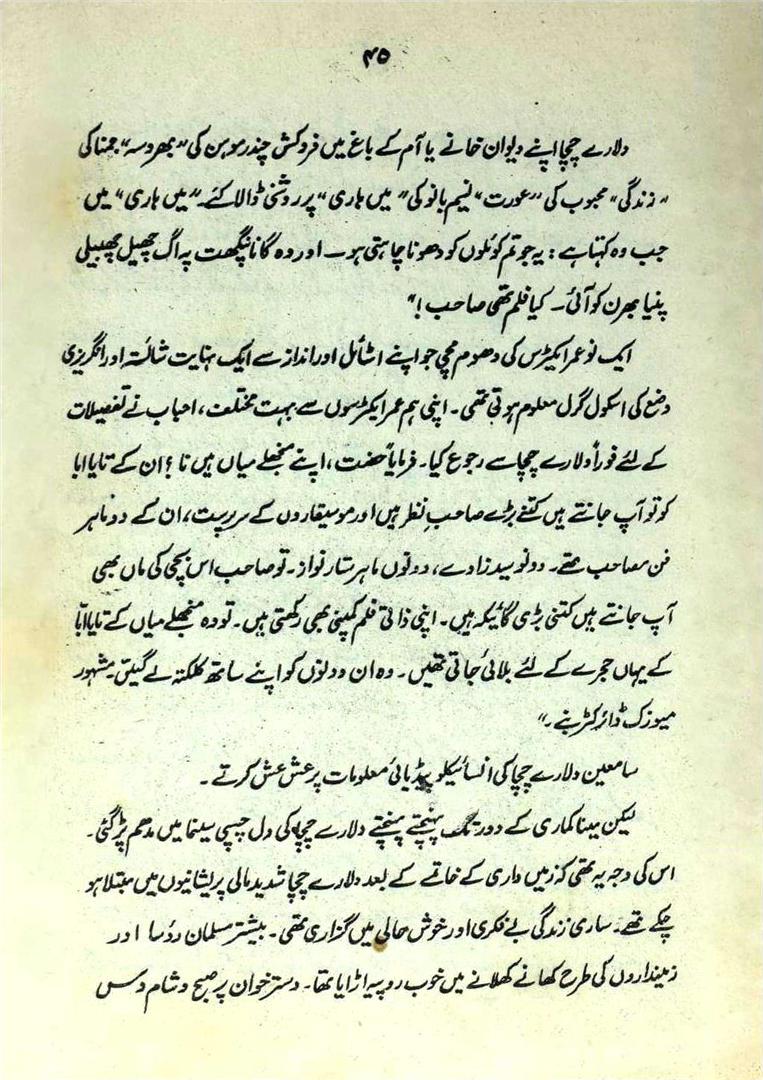 ۴۵
دلارے چچا اپنے دیوان خانے یا آم کے باغ میں فروکش چندر موہن کی "بھروسہ" جمنا کی
"زندگی" محبوب کی "عورت" نسیم بانو کی "میں ہاری" پر روشنی ڈالا کئے۔ "میں ہاری" میں
جب وہ کہتا ہے : یہ جو تم کوئلوں کو دھونا چاہتی ہو۔ اور وہ گانا پنگھت پہ اگ چھیل چھبیلی
پنیا بھرن کو آئی۔ کیا فلم تھی صاحب!"
ایک نو عمر ایکٹرس کی دھوم مچی جو اپنے اسٹائل اور انداز سے ایک نہایت شائستہ اور انگریزی
وضع کی اسکول گرل معلوم ہوتی تھی۔ اپنی ہم عمر ایکٹرسوں سے بہت مختلف، احباب نے تفصیلات
کے لئے فوراً دلارے چچا سے رجوع کیا۔ فرمایا حضت، اپنے منجھلے میاں ہیں نا ؟ ان کے تایا ابا
کو تو آپ جانتے ہیں کتنے بڑے صاحبِ نظر ہیں اور موسیقاروں کے سرپرست، ان کے دو ماہر
فن مصاحب تھے۔ دونو سید زادے، دونوں ماہر ستار نواز۔ تو صاحب اس بچی کی ماں بھی
آپ جانتے ہیں کتنی بڑی گائیکہ ہیں۔ اپنی ذاتی فلم کمپنی بھی رکھتی ہیں۔ تو وہ منجھلے میاں کے تایا ابّا
کے یہاں مجرے کے لئے بلائی جاتی تھیں۔ وہ ان دونوں کو اپنے ساتھ کلکتہ لے گئیں۔ مشہور
میوزک ڈائرکٹر بنے۔"
سامعین دلارے چچا کی انسائیکلو پیڈیائی معلومات پر عش عش کرتے۔
لیکن مینا کماری کے دور تک پہنچتے پہنچتے دلارے چچا کی دل چسپی سینما میں مدھم پڑ گئی۔
اس کی وجہ یہ تھی کہ زمیں داری کے خاتمے کے بعد دلارے چچا شدید مالی پریشانیوں میں مبتلا ہو
چکے تھے۔ ساری زندگی بے فکری اور خوش حالی میں گزاری تھی۔ بیشتر مسلمان رؤسا اور
زمینداروں کی طرح کھانے کھلانے میں خوب روپیہ اڑایا تھا۔ دسترخوان پر صبح و شام دس